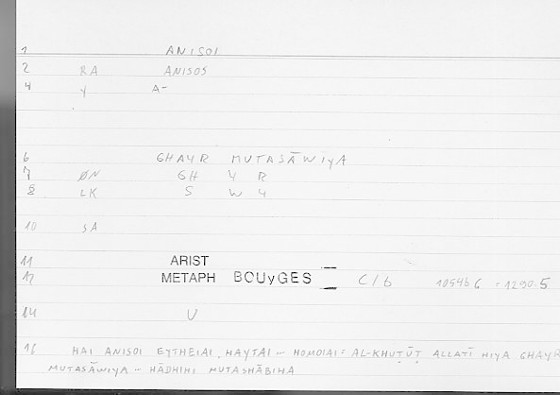 1 ANISOI
2 RA ANISOS
4 y A-
6 GHAYR MUTASĀWIYA
7 ØN GH Y R
8 LK S W Y
10 SA
11 ARIST
12 METAPH BOUyGES C/b 1054b6 = 1290.5
14 U
16 HAI ANISOI EYTHEIAI HAYTAI -- HOMOIAI = AL-KHUṬŪṬ ALLATĪ HIYA GHAYR
MUTASĀWIYA -- HĀDHIHI MUTASHĀBIHA